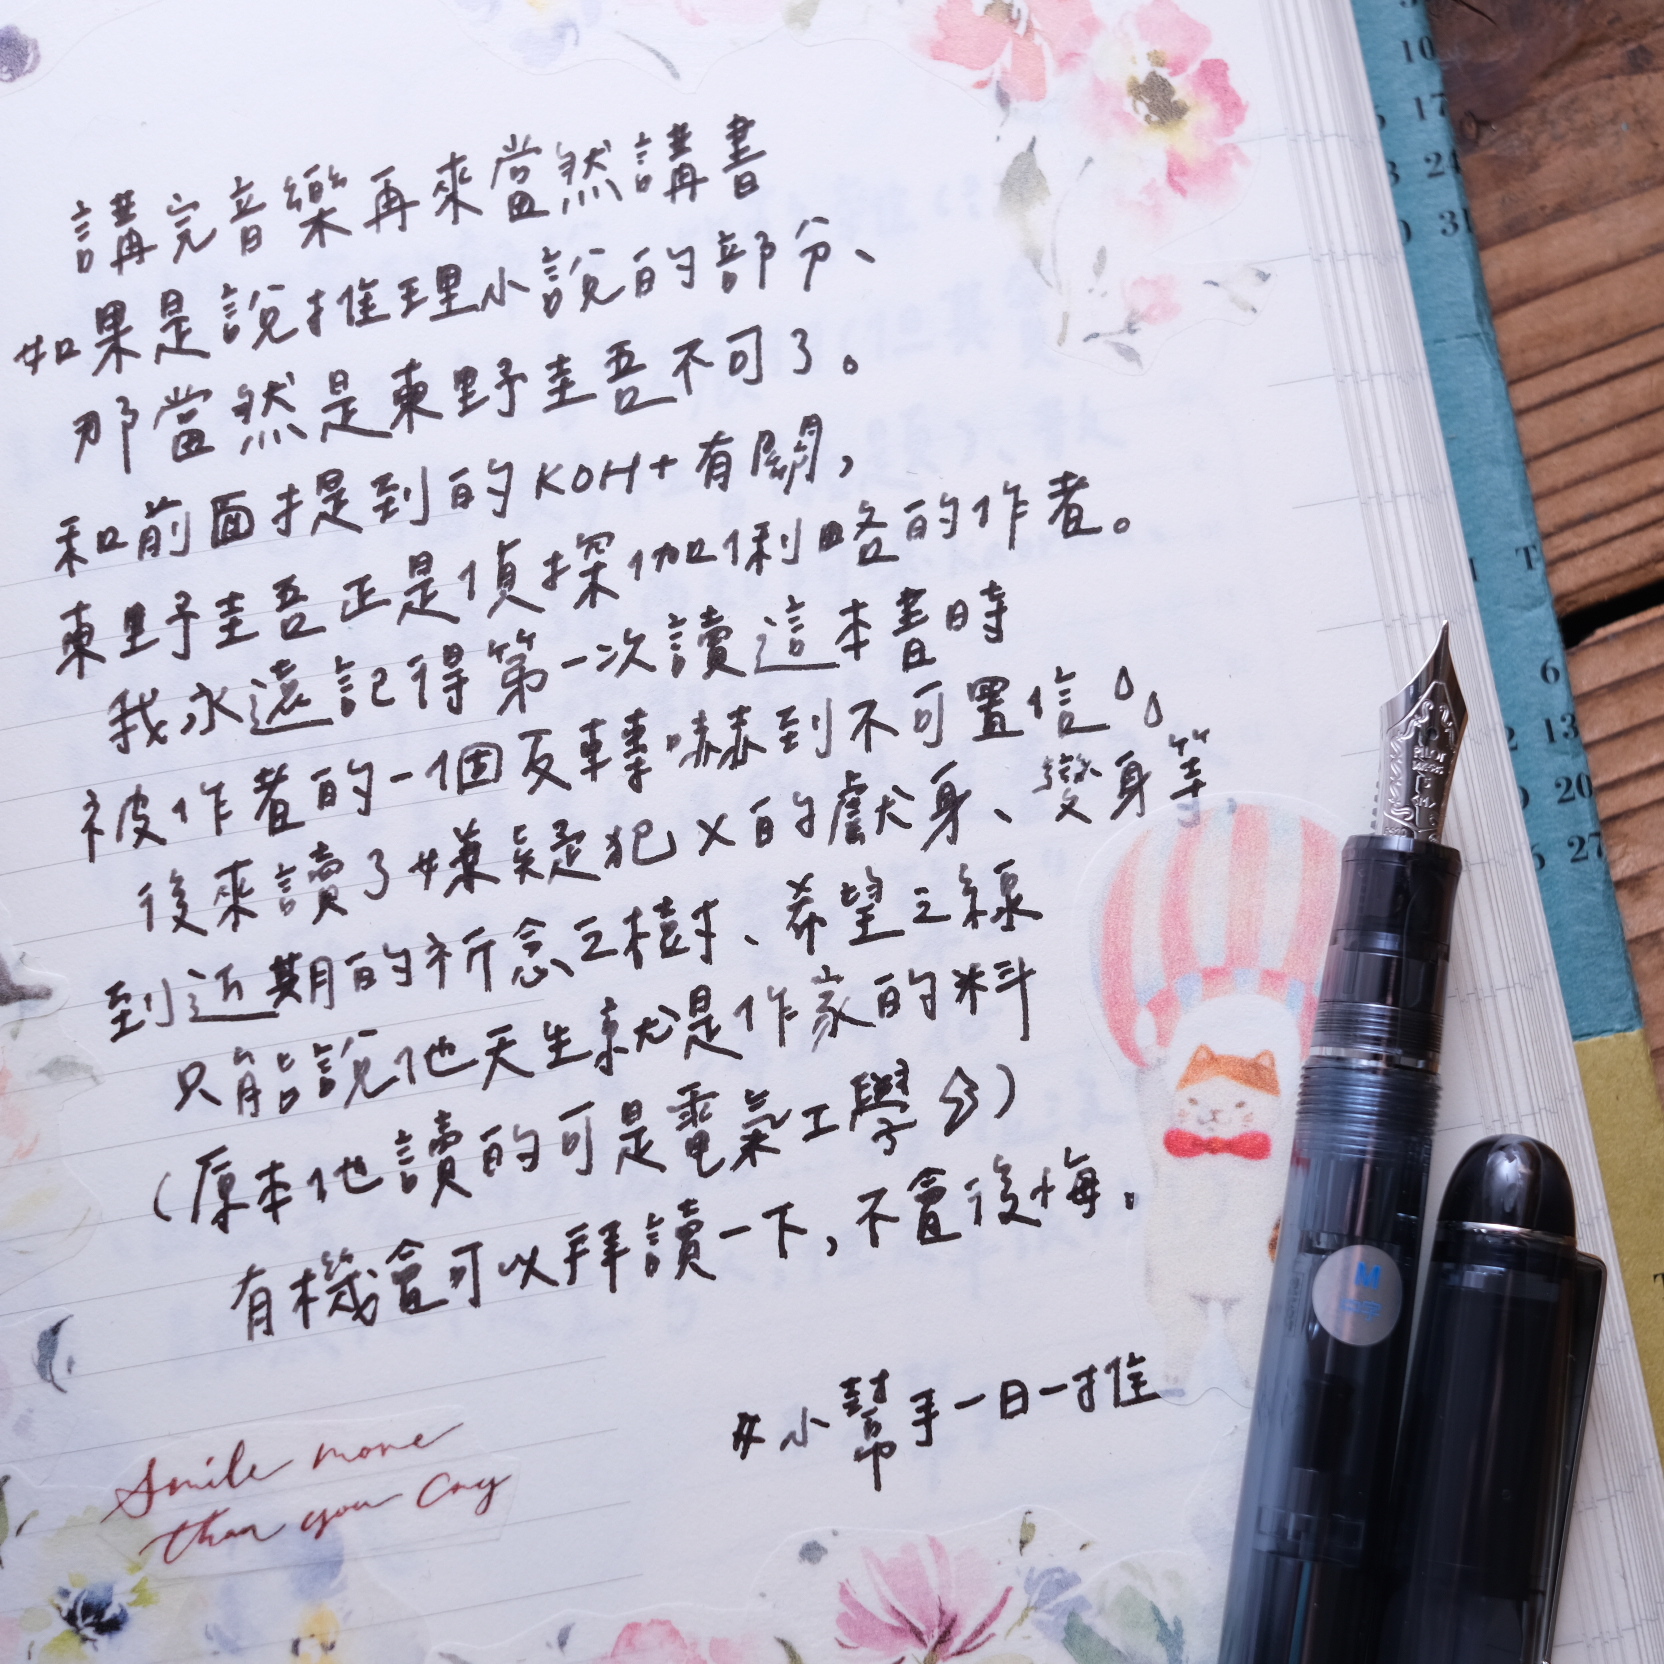 講完音樂再來當然講書
如果是說推理小說的部分、
那當然是東野圭吾不可了。
和前面提到的KOH+有關,
東野圭吾正是偵探伽俐略的作者。
我永遠記得第一次讀這本書時
被作者的一個反轉嚇到不可置信。
後來讀了嫌疑犯X的獻身、變身等,
到近期的祈念之樹、希望之線
只能說他天生就是作家的料
(原本他讀的可是電氣工學)
有機會可以拜讀一下,不會後悔。
#小幫手一日一推
Smile more
than you Cry
10
17
24
31
6
13
20
27
PILOT
M